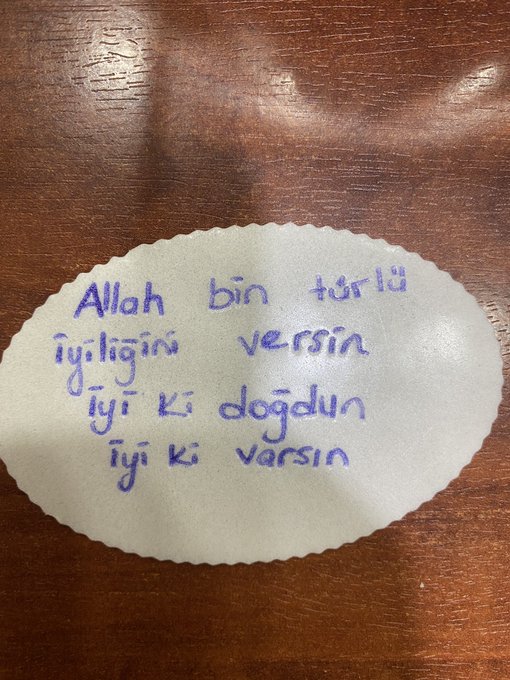 Allah bin türlü
iyiliğini versin
iyi ki doğdun
iyi ki varsın